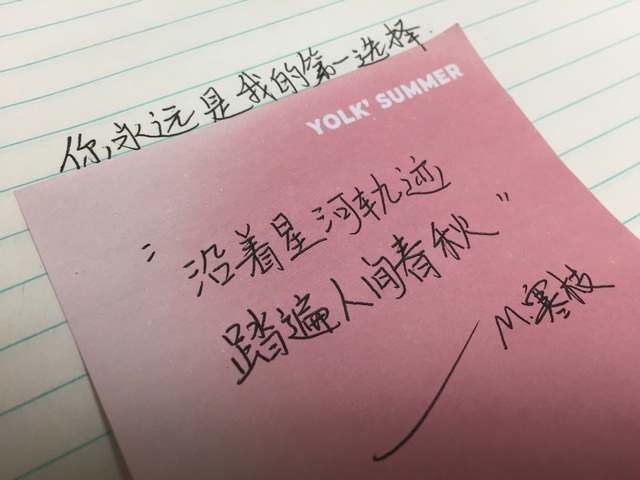 你永远是我的第一选择.
YOLK' SUMMER
“沿着星河轨迹
踏遍人间春秋”
M.寒枝